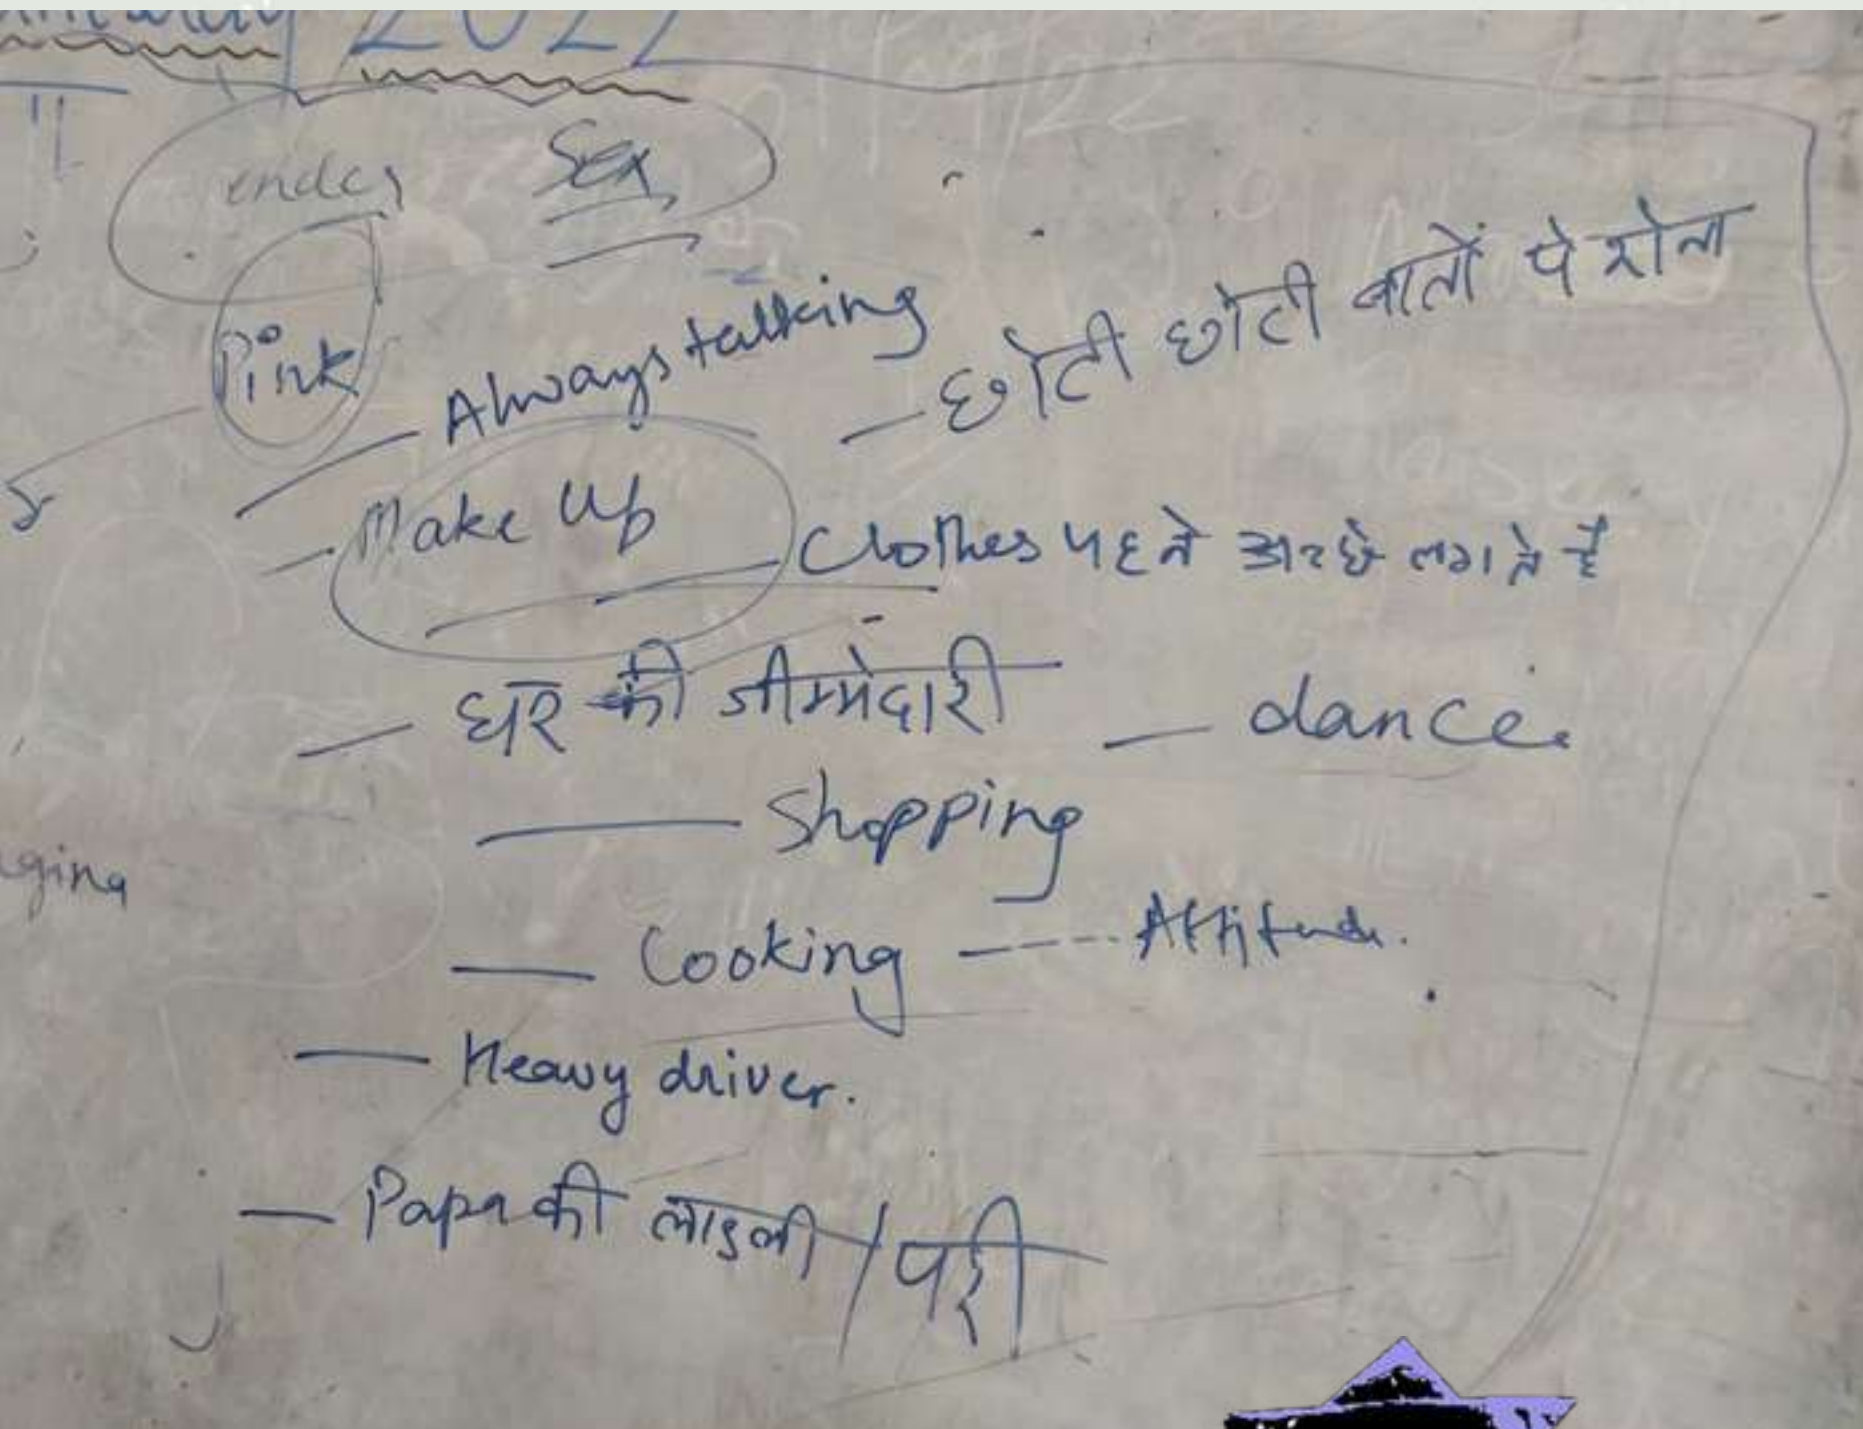 2022
ender Sex
Pink
Always talking
छोटी छोटी बातों पे रोना
Make Up
Clothes पहने अच्छे लगते है
घर की जीम्मेदारी
dance
Shopping
Cooking
Attitude.
Heavy driver.
Papa की लाडली / परी